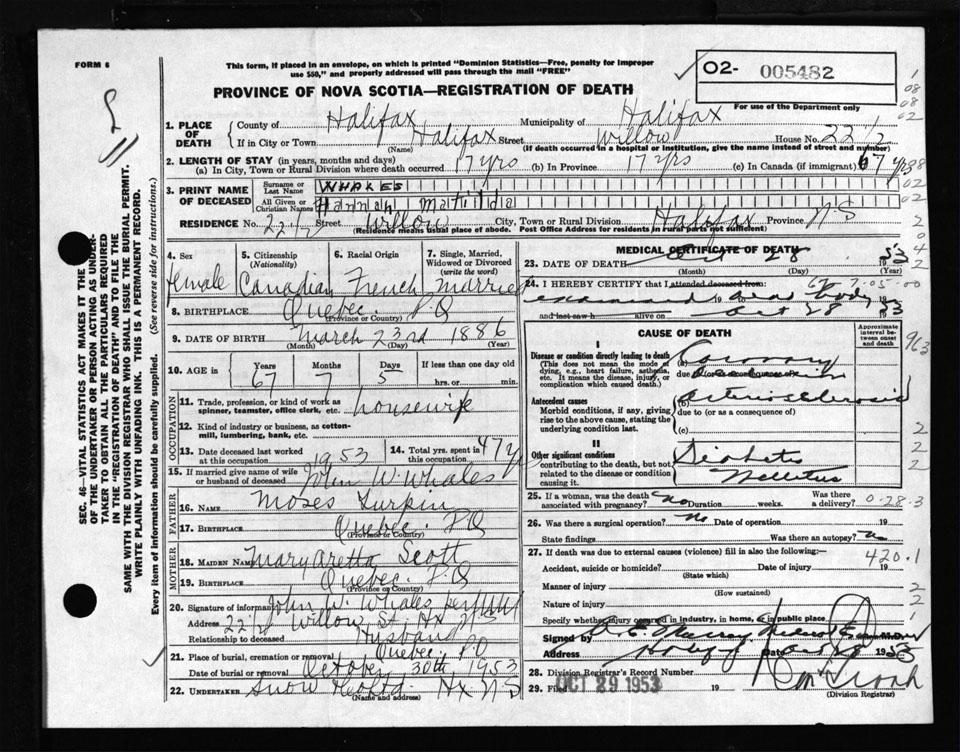 FORM 6
This form, if placed in an envelope, on which is printed "Dominion Statistics—Free, penalty for improper
use $50," and properly addressed will pass through the mail "FREE"
O2- 005482
For use of the Department only
PROVINCE OF NOVA SCOTIA—REGISTRATION OF DEATH
1. PLACE OF DEATH
County of Halifax Municipality of Halifax
If in City or Town Halifax Street Willow House No. 22 1/2
(Name) (If death occurred in a hospital or institution, give the name instead of street and number)
2. LENGTH OF STAY (in years, months and days)
(a) In City, Town or Rural Division where death occurred 17 yrs (b) In Province 17 yrs (c) In Canada (if immigrant) 67 yrs
3. PRINT NAME OF DECEASED
Surname or Last Name WHALES
All Given or Christian Names Hannah Matilda
RESIDENCE No. 22 1/2 Street Willow City, Town or Rural Division Halifax Province NS
(Residence means usual place of abode. Post Office Address for residents in rural parts not sufficient)
4. Sex female
5. Citizenship (Nationality) Canadian
6. Racial Origin French
7. Single, Married, Widowed or Divorced (write the word) Married
8. BIRTHPLACE Quebec P.Q
(Province or Country)
9. DATE OF BIRTH March 23rd 1886
(Month) (Day) (Year)
10. AGE in Years 67 Months 7 Days 5 If less than one day old hrs. or min.
OCCUPATION
11. Trade, profession, or kind of work as
spinner, teamster, office clerk, etc. housewife
12. Kind of industry or business, as cotton-
mill, lumbering, bank, etc.
13. Date deceased last worked
at this occupation 1953
14. Total yrs. spent in
this occupation 47 y
15. If married give name of wife
or husband of deceased John W. Whales
FATHER
16. NAME Moses Turpin
17. BIRTHPLACE Quebec. P.Q
(Province or Country)
MOTHER
18. MAIDEN NAME Mary Aretta Scott
19. BIRTHPLACE Quebec. P.Q
(Province or Country)
20. Signature of informant John W. Whales
Address 22 1/2 Willow St. Hx N S
Relationship to deceased Husband
21. Place of burial, cremation or removal Quebec P.Q
Date of burial or removal October 30th 1953
22. UNDERTAKER Snow Hx N S
(Name and address)
MEDICAL CERTIFICATE OF DEATH
23. DATE OF DEATH Oct 28 53
(Month) (Day) (Year)
24. I HEREBY CERTIFY that I attended deceased from:
examined dead body
and last saw h alive on Oct 28 53
CAUSE OF DEATH
Approximate interval between onset and death
I
Disease or condition directly leading to death
(This does not mean the mode of dying, e.g., heart failure, asthenia, etc. It means the disease, injury, or complication that caused death)
(a) Coronary
due to (or as a consequence of)
Antecedent causes
Morbid conditions, if any, giving rise to the above cause, stating the underlying condition last.
(b) Arteriosclerosis
due to (or as a consequence of)
(c)
II
Other significant conditions
contributing to the death, but not related to the disease or condition causing it.
Diabetes
Mellitus
25. If a woman, was the death associated with pregnancy? No Duration weeks. Was there a delivery?
26. Was there a surgical operation? No Date of operation 19
State findings Was there an autopsy? No
27. If death was due to external causes (violence) fill in also the following:—
Accident, suicide or homicide? Date of injury 19
(State which)
Manner of injury
(How sustained)
Nature of injury
Specify whether injury occurred in industry, in home, or in public place
420.1
Signed by E. Murray M.D.
Address Halifax Date Oct 28 1953
28. Division Registrar's Record Number
29. Filed OCT 29 1953 19
(Division Registrar)
SEC. 46—VITAL STATISTICS ACT MAKES IT THE DUTY
OF THE UNDERTAKER OR PERSON ACTING AS UNDER-
TAKER TO OBTAIN ALL THE PARTICULARS REQUIRED
IN THE "REGISTRATION OF DEATH" AND TO FILE THE
SAME WITH THE DIVISION REGISTRAR WHO SHALL ISSUE THE BURIAL PERMIT.
WRITE PLAINLY WITH UNFADING INK. THIS IS A PERMANENT RECORD.
Every item of information should be carefully supplied. (See reverse side for instructions.)